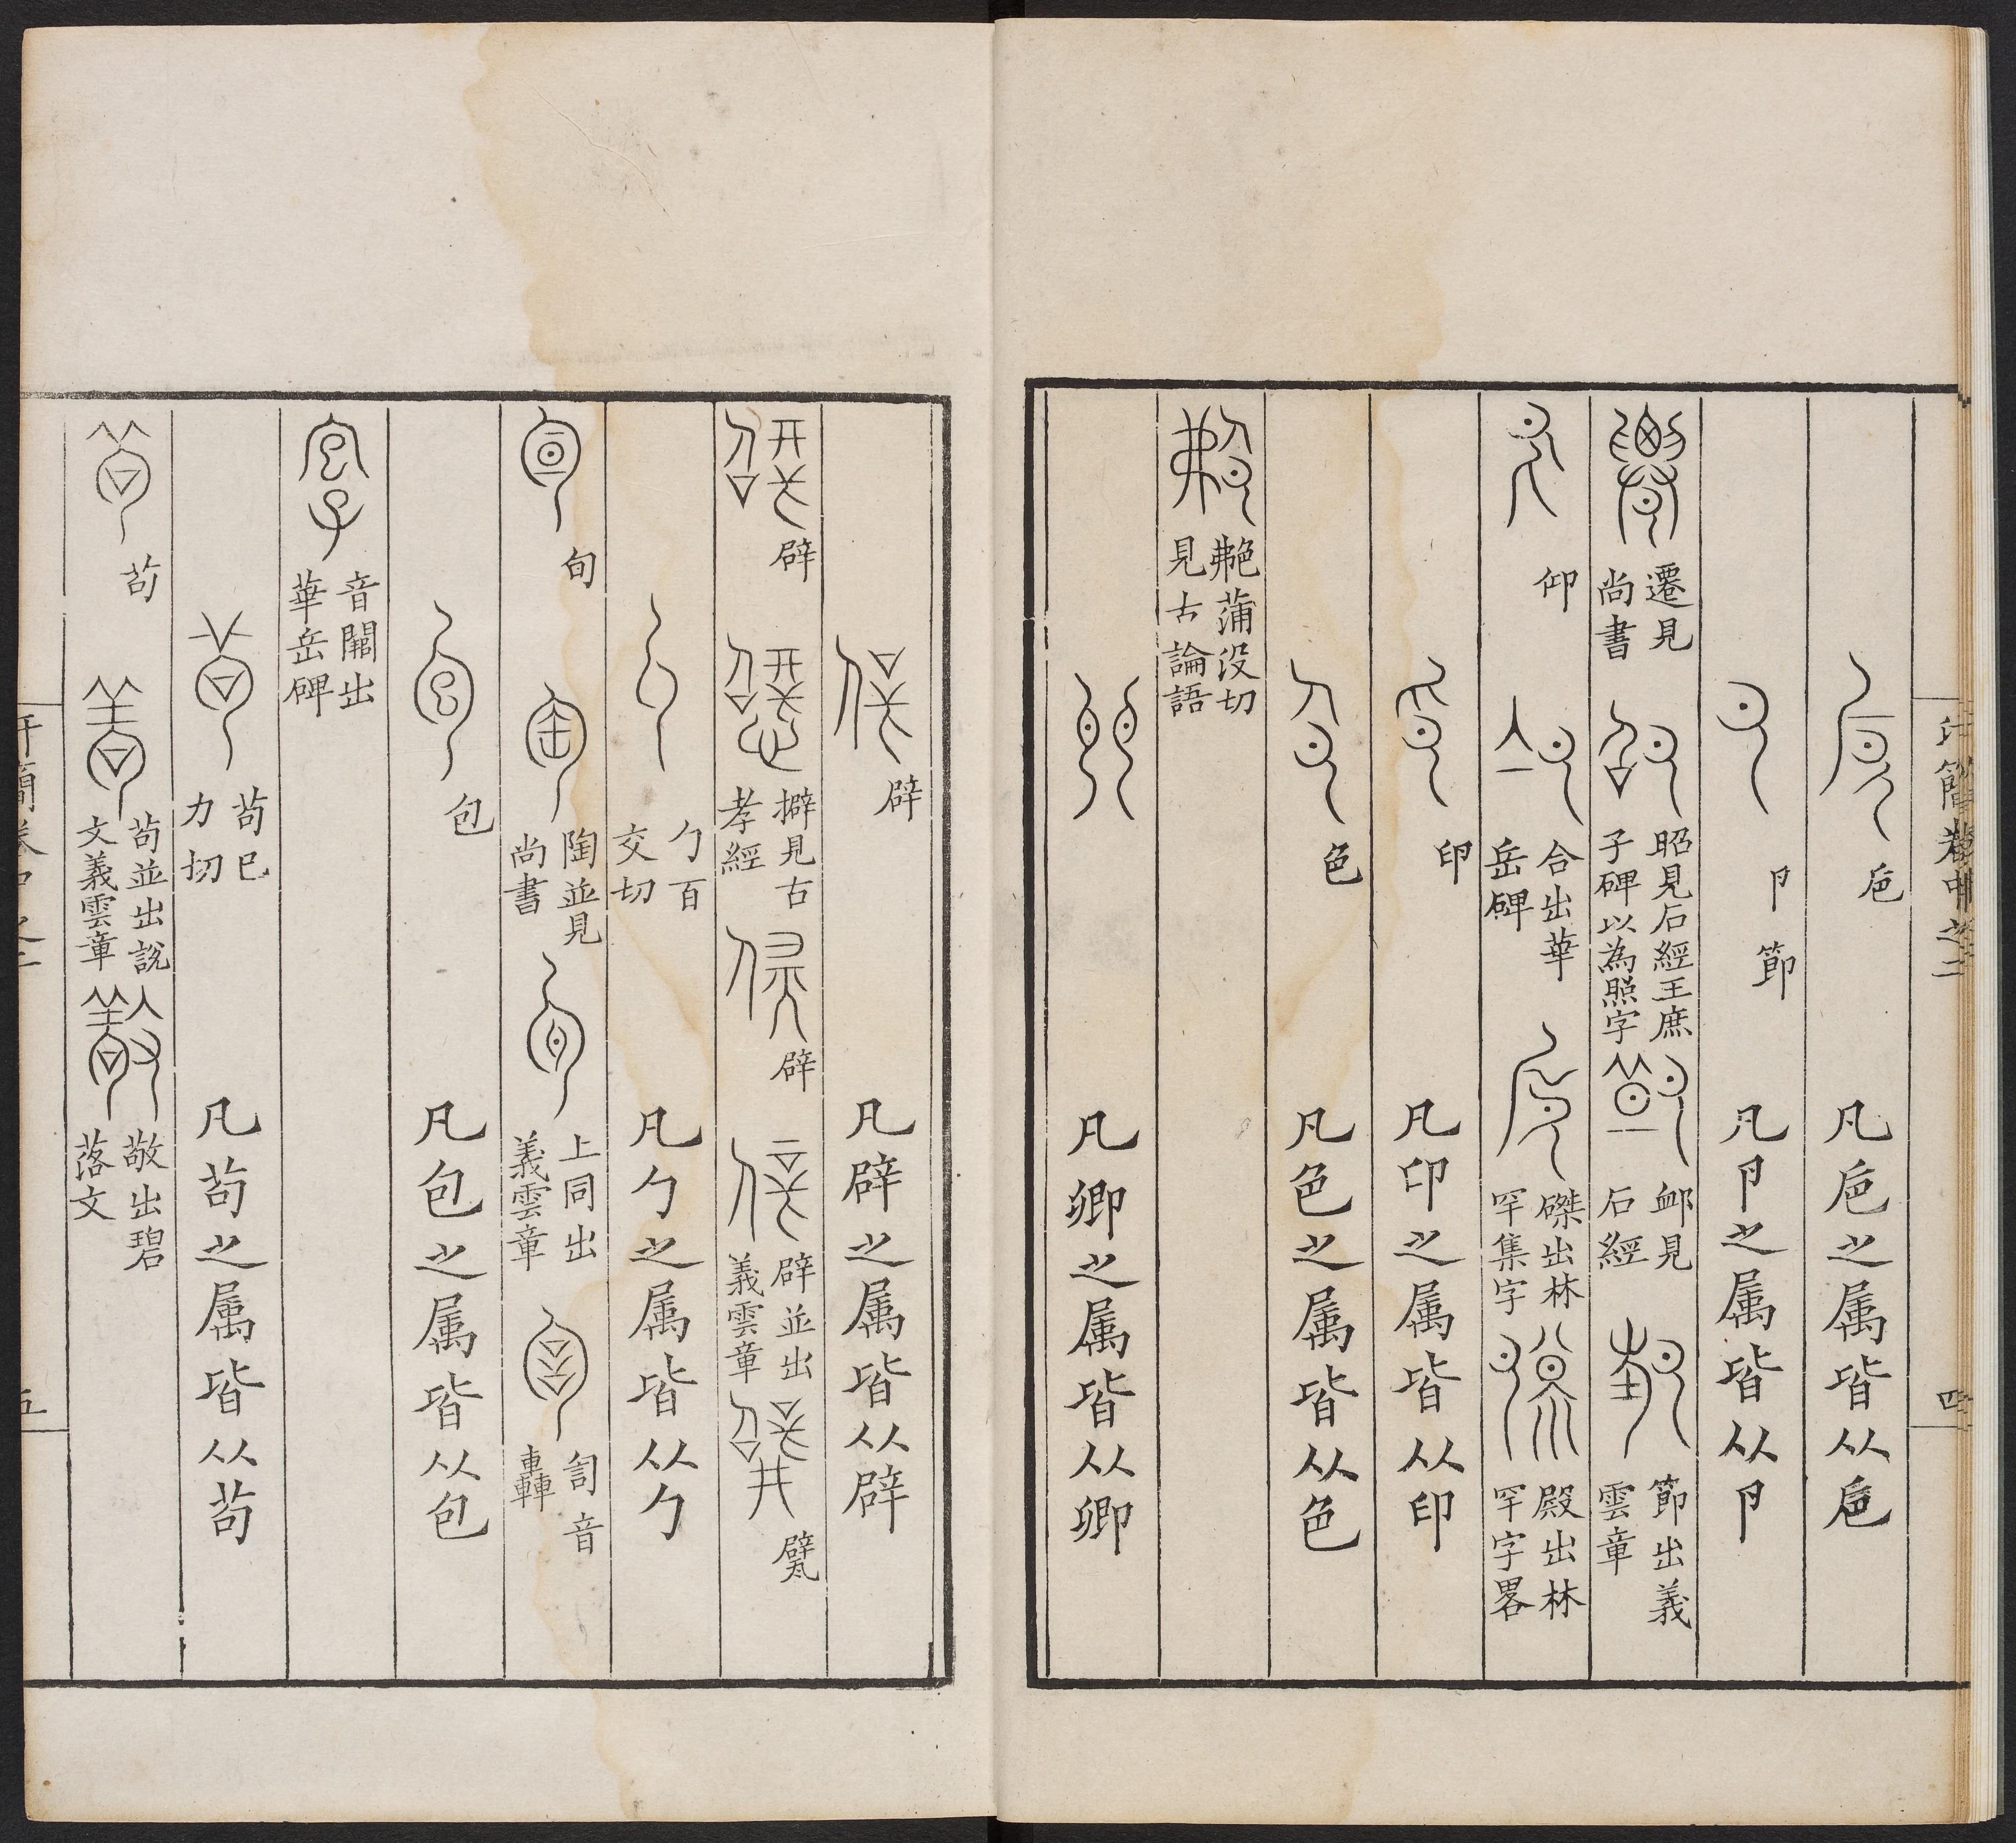 汗簡卷中之二
四
卮 凡卮之属皆从卮
卪 節 凡卪之属皆从卪
遷見尚書 昭見石經王庶子碑以為照字 卹見石經 節出義雲章
仰 合出華岳碑 磔出林罕集字 殿出林罕字畧
印 凡印之属皆从印
色 凡色之属皆从色
艴蒲没切見古論語
凡卿之属皆从卿
辟 凡辟之属皆从辟
辟 擗見古孝經 辟 辟並出義雲章 甓
勹百交切 凡勹之属皆从勹
旬 陶並見尚書 上同出義雲章 訇音轟
包 凡包之属皆从包
音闢出華岳碑
茍巳力切 凡茍之属皆从茍
茍 茍並出說文義雲章 敬出碧落文
汗簡卷中之二
五